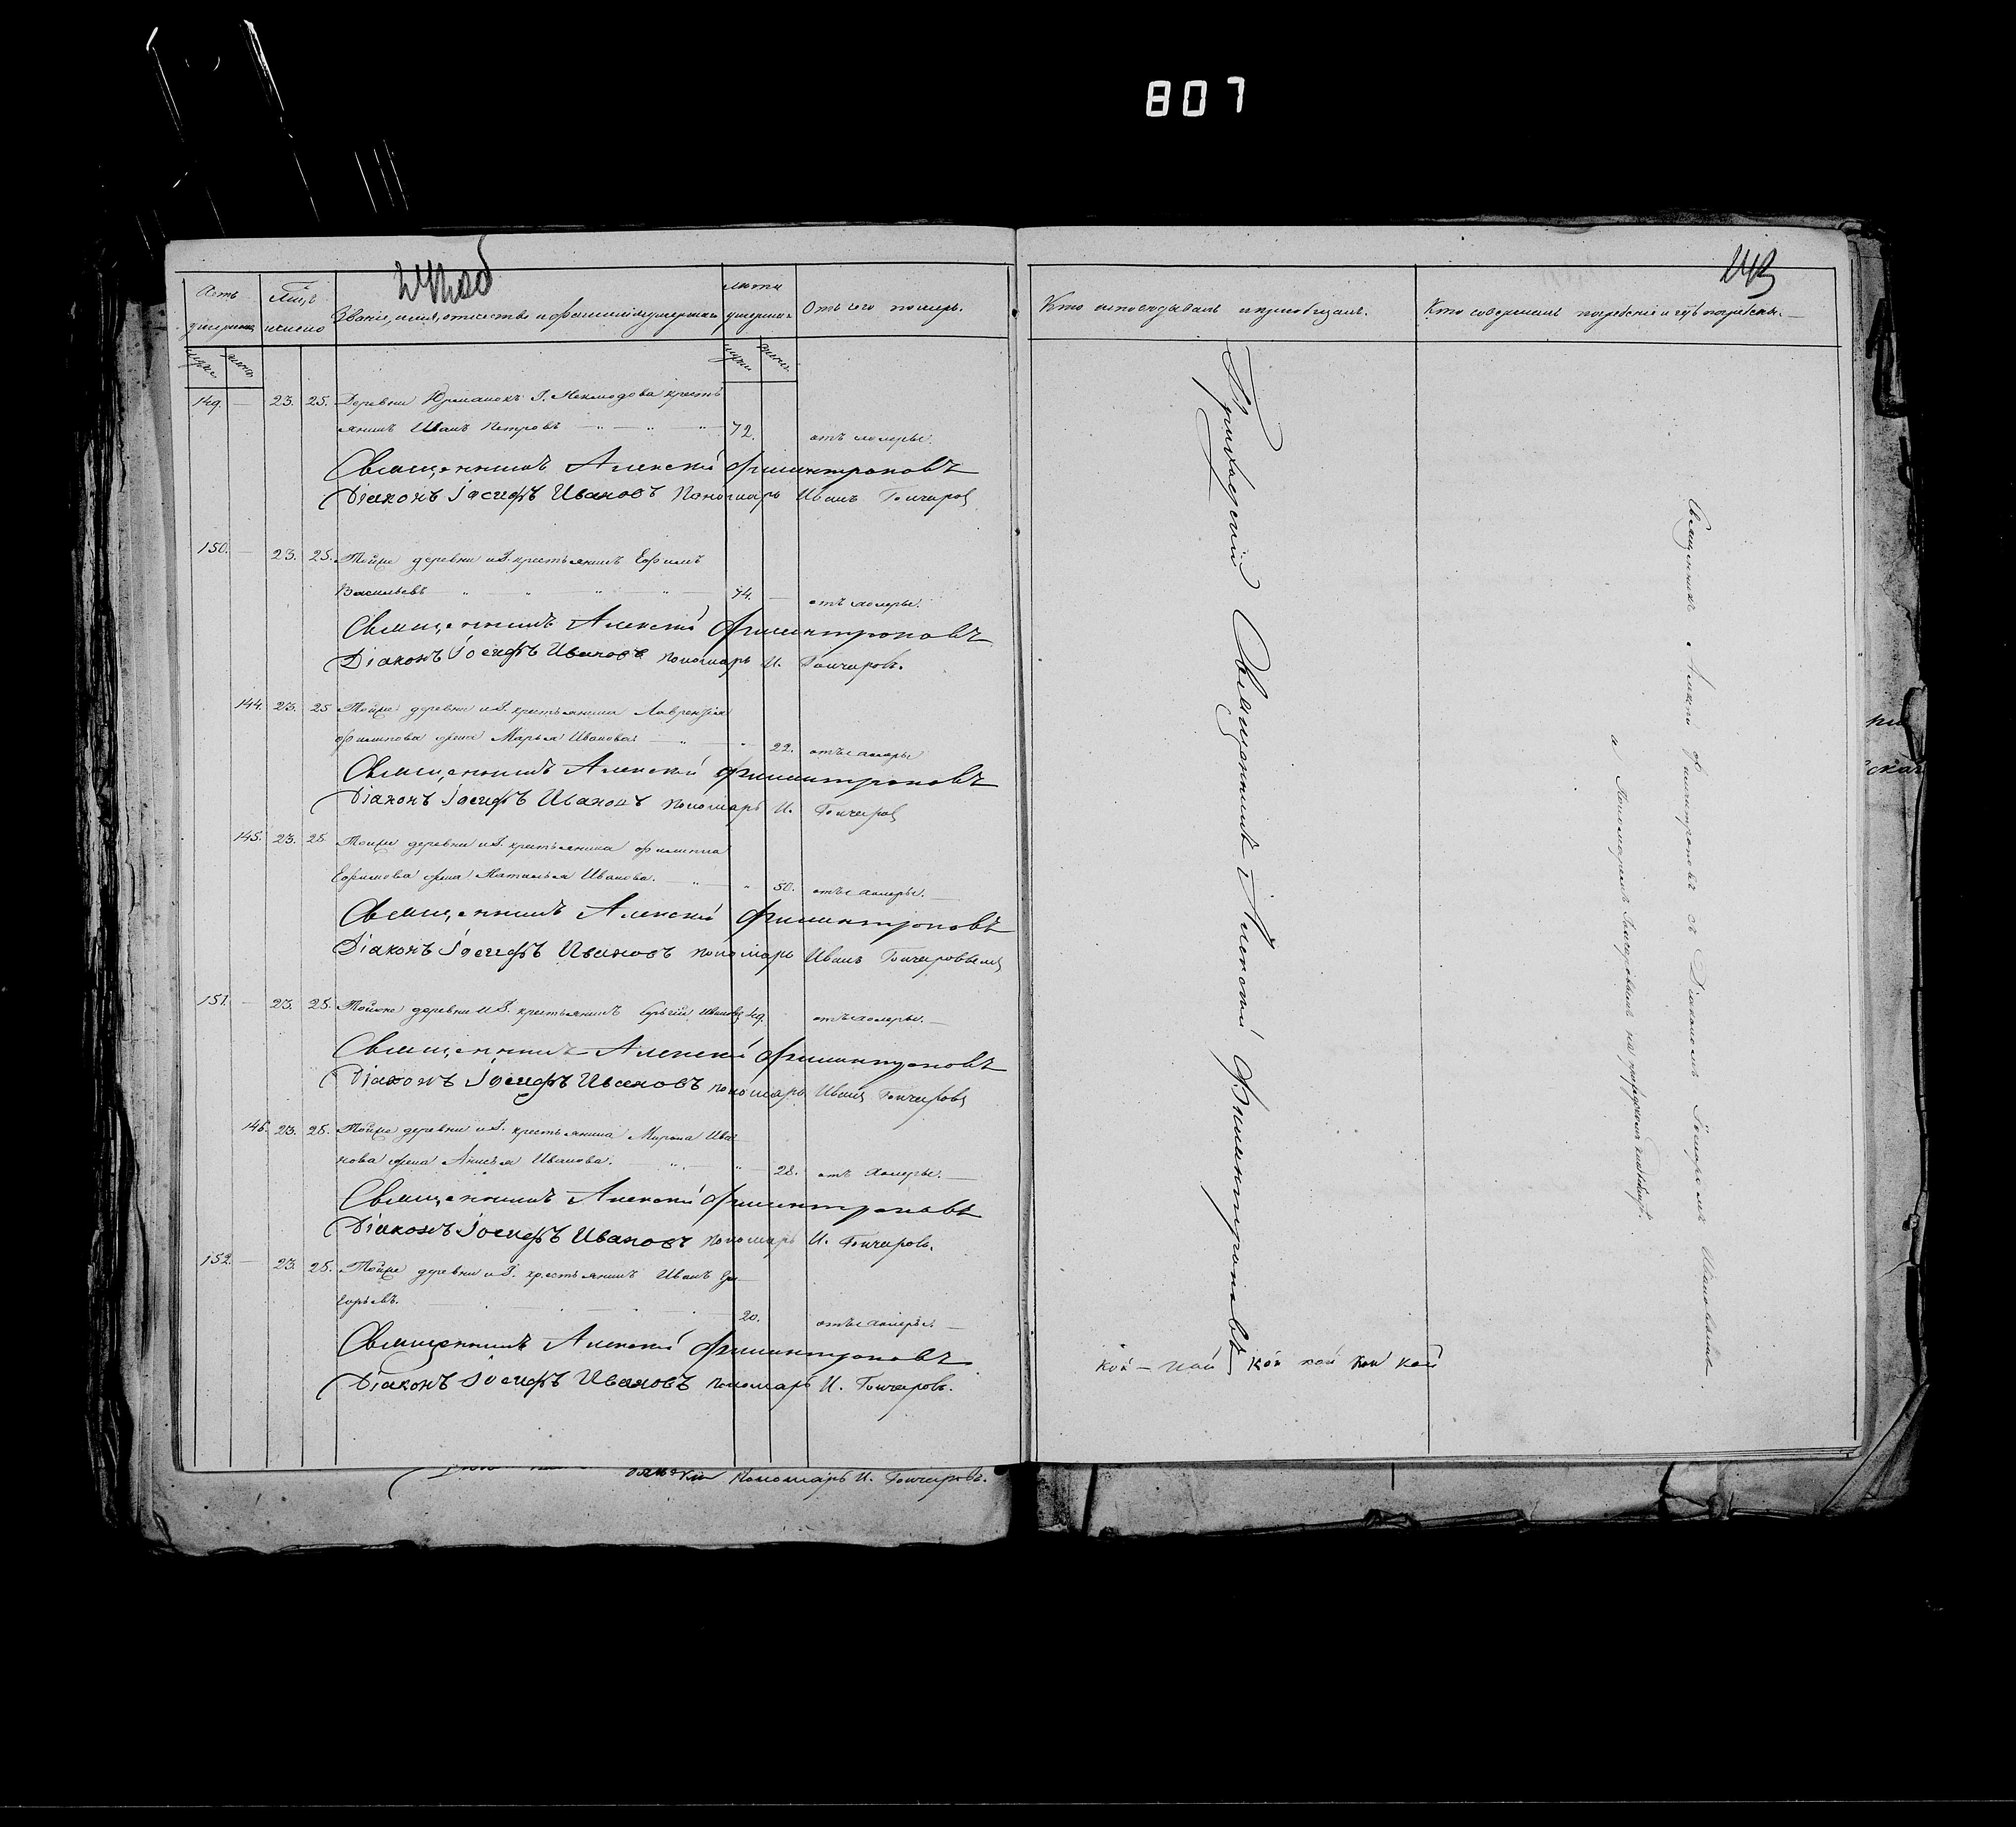 807
242 об
243
Счетъ умершихъ
Мѣсяцъ и число
Званіе, имя, отчество и фамилія умершаго
лѣта умершаго
Отъ чего померъ.
Кто исповѣдывалъ и пріобщалъ.
Кто совершалъ погребеніе и гдѣ погребены.
муж. жен. муж. жен.
149. — 23. 25. Деревни крестъ
янинъ Иванъ Петровъ — „ — „ — „ 72. отъ холеры.
Священникъ Алексій Филинтроповъ
Діаконъ Іосифъ Ивановъ Пономарь Иванъ Гончаровъ
150. — 23. 25. Тойже деревни и Г. крестьянинъ Ефимъ
Васильевъ „ „ „ „ 44. — отъ холеры.
Священникъ Алексій Филинтроповъ
Діаконъ Іосифъ Ивановъ пономарь И. Гончаровъ.
144. 23. 25 Тойже деревни и Г. крестьянина Лаврентія
Филипова жена Марья Иванова — „ — „ 22. отъ холеры
Священникъ Алексій Филинтроповъ
Діаконъ Іосифъ Ивановъ пономарь И. Гончаровъ
145. 23. 25 Тойже деревни и Г. крестьянина Филиппа
Ефимова жена Наталья Иванова. — „ — „ 50. отъ холеры. —
Священникъ Алексій Филинтроповъ
Діаконъ Іосифъ Ивановъ пономарь Иванъ Гончаровъ
151. — 23. 25. Тойже деревни и Г. крестьянинъ Ивановъ 49. отъ холеры. —
Священникъ Алексій Филинтроповъ
Діаконъ Іосифъ Ивановъ пономарь Иванъ Гончаровъ
146. 23. 25. Тойже деревни и Г. крестьянина Мирона Ива
нова жена Анисья Иванова. — „ — „ 28. отъ холеры. —
Священникъ Алексій Филинтроповъ
Діаконъ Іосифъ Ивановъ пономарь И. Гончаровъ.
152. — 23. 25. Тойже деревни и Г. крестьянинъ Иванъ Гри
горьевъ. 20. отъ холеры. —
Священникъ Алексій Филинтроповъ
Діаконъ Іосифъ Ивановъ пономарь И. Гончаровъ.
Пономарь И. Гончаровъ.
Приходскій Священникъ Алексій Филинтроповъ
Священникъ Алексій Филинтроповъ съ Діакономъ Іосифомъ Ивановымъ
и Пономаремъ Гончаровымъ на приходскомъ кладбищѣ.
кой — кой кой кой кой кой